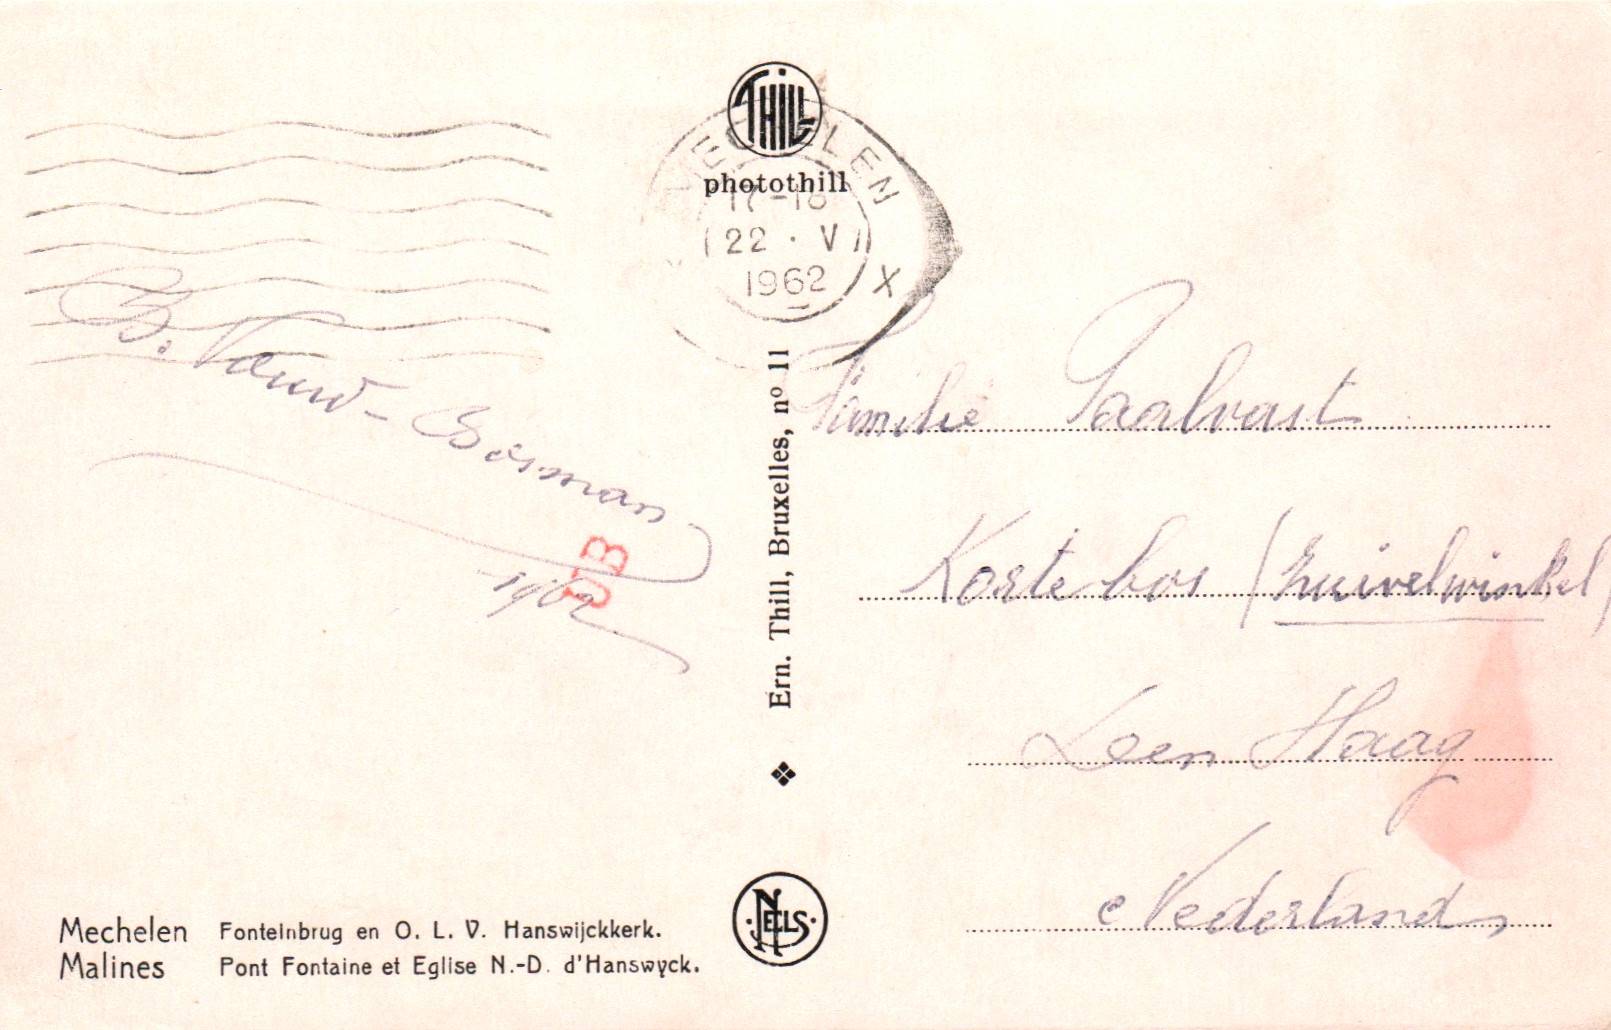 THILL
photothill
MECHELEN
17-18
22 · V
1962
X
B. Vauw-Bosman
1962
Ern. Thill, Bruxelles, nº 11
Familie Paalvast
Korte bos (zuivelwinkel)
Den Haag
Nederland
NELS
Mechelen Fonteinbrug en O. L. V. Hanswijckkerk.
Malines Pont Fontaine et Eglise N.-D. d'Hanswyck.